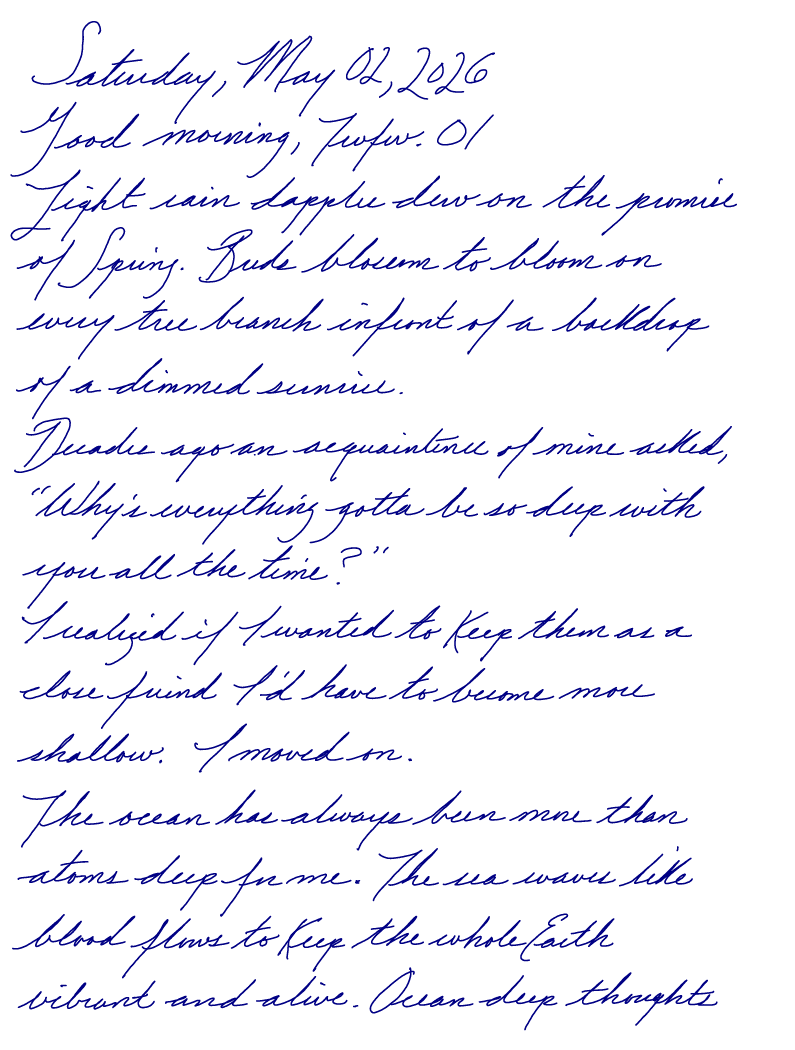 Saturday, May 02, 2026
Good morning, Twfw. 01
Light rain dapples dew on the promise
of Spring. Buds blossom to bloom on
every tree branch infront of a backdrop
of a dimmed sunrise.
Decades ago an acquaintence of mine asked,
"Why's everything gotta be so deep with
you all the time?"
I realized if I wanted to keep them as a
close friend I'd have to become more
shallow. I moved on.
The ocean has always been more than
atoms deep for me. The sea waves like
blood flows to keep the whole Earth
vibrant and alive. Ocean deep thoughts